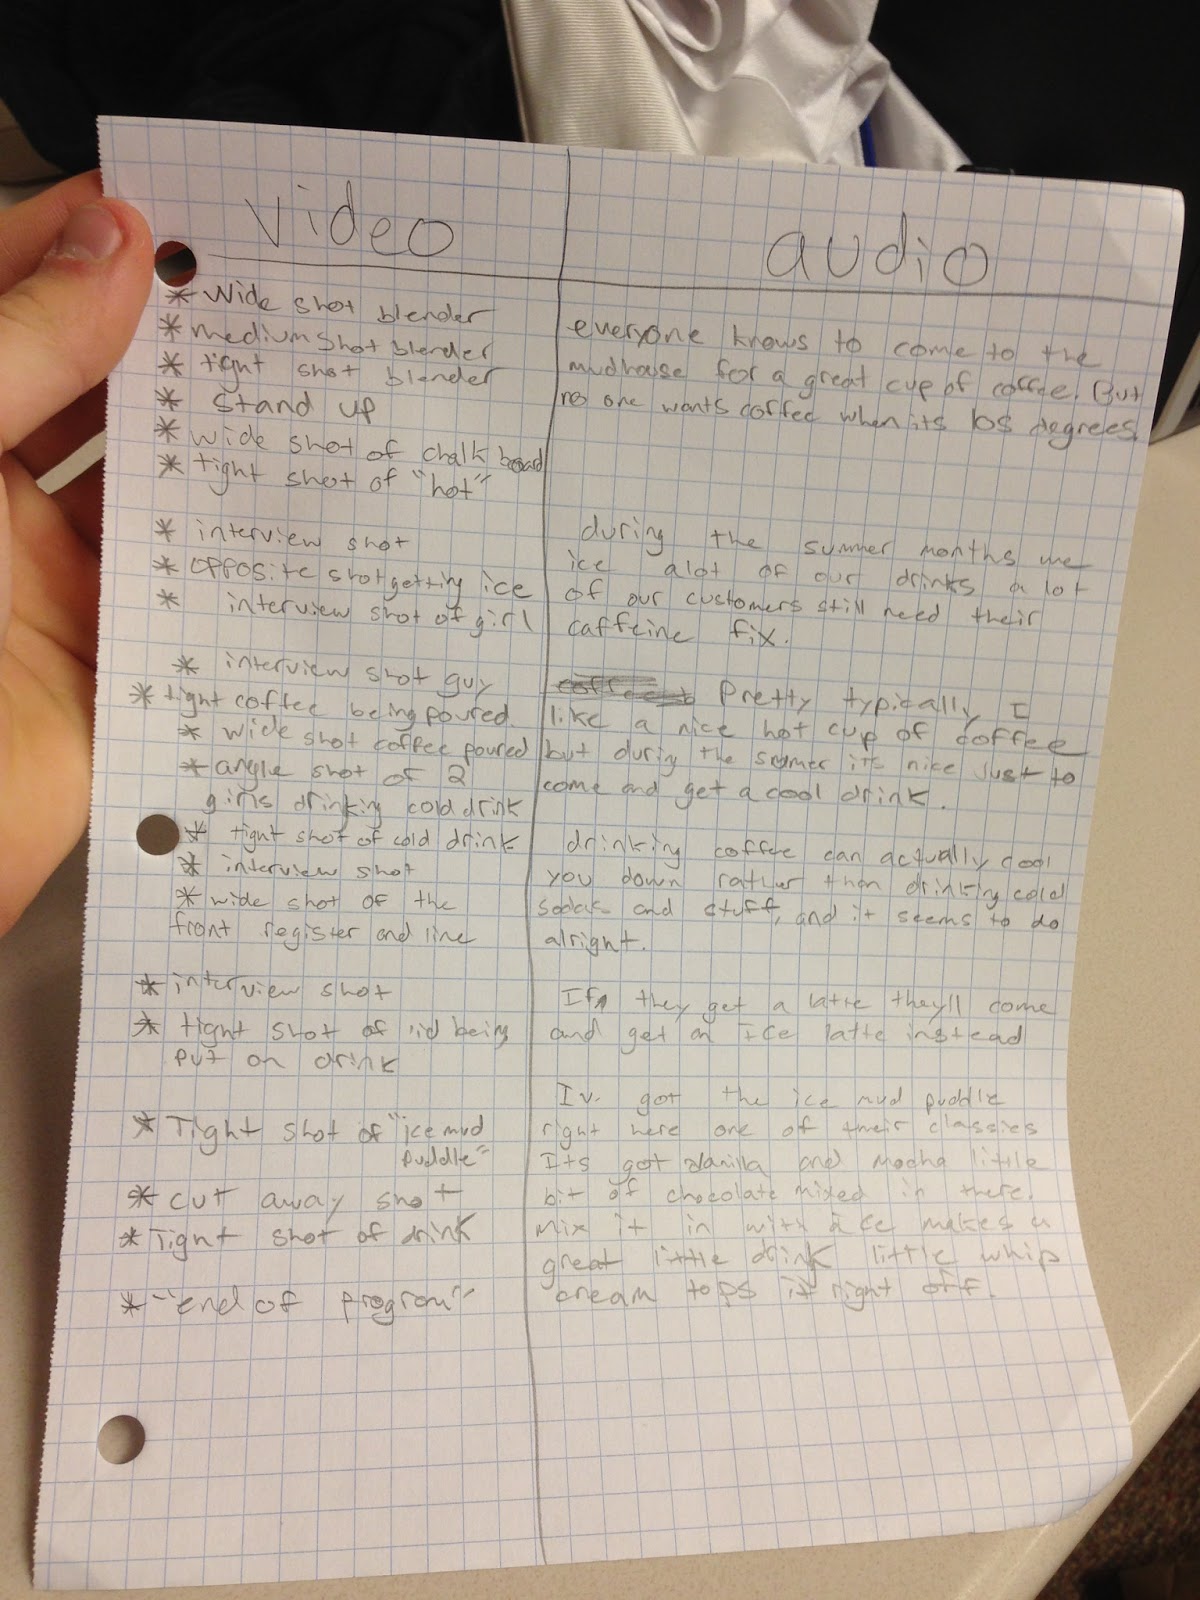 video
* Wide shot blender
* medium shot blender
* tight shot blender
* Stand up
* wide shot of chalk board
* tight shot of "hot"
* interview shot
* opposite shot getting ice
* interview shot of girl
* interview shot guy
* tight coffee being poured
* wide shot coffee poured
* angle shot of 2
girls drinking cold drink
* tight shot of cold drink
* interview shot
* wide shot of the
front register and line
* interview shot
* tight shot of lid being
put on drink
* Tight shot of "ice mud
puddle"
* cut away shot
* Tight shot of drink
* "end of program"
audio
everyone knows to come to the
mudhouse for a great cup of coffee. But
no one wants coffee when its 105 degrees.
during the summer months we
ice alot of our drinks a lot
of our customers still need their
caffeine fix.
Pretty typically I
like a nice hot cup of coffee
but durig the summer its nice just to
come and get a cool drink.
drinking coffee can actually cool
you down rather then drinking cold
and stuff, and it seems to do
alright.
If they get a latte they'll come
and get an Ice latte instead
Iv. got the ice mud puddle
right here one of their classics
Its got and mocha little
bit of chocolate mixed in there.
mix it in with ice makes a
great little drink little whip
cream tops it right off.